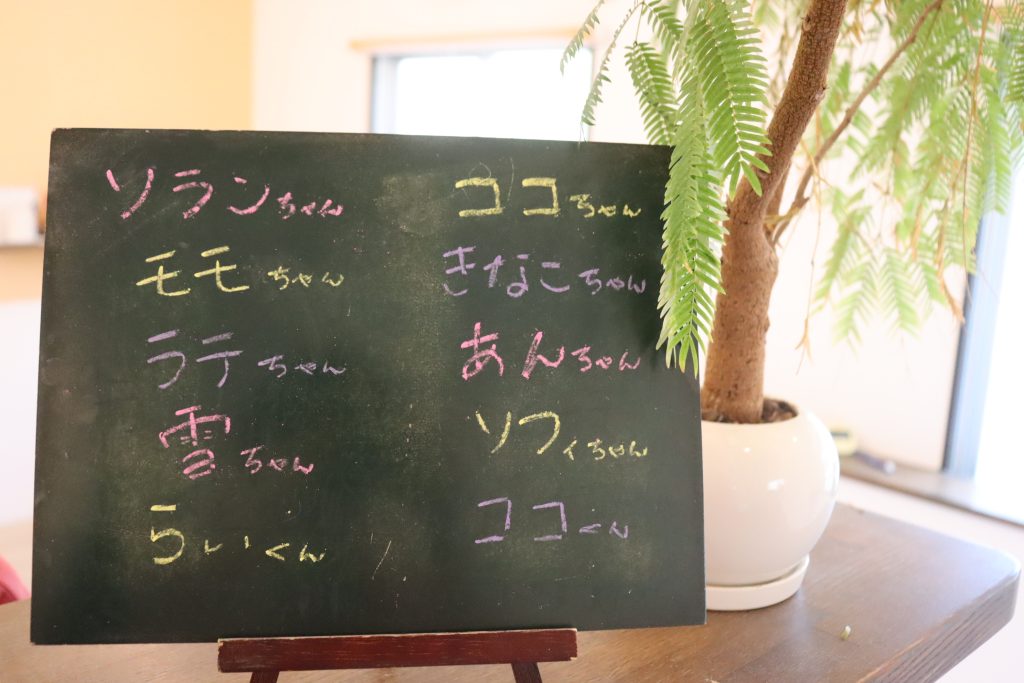 ソランちゃん
モモちゃん
ラテちゃん
雪ちゃん
らいくん
ココちゃん
きなこちゃん
あんちゃん
ソフィちゃん
ココくん